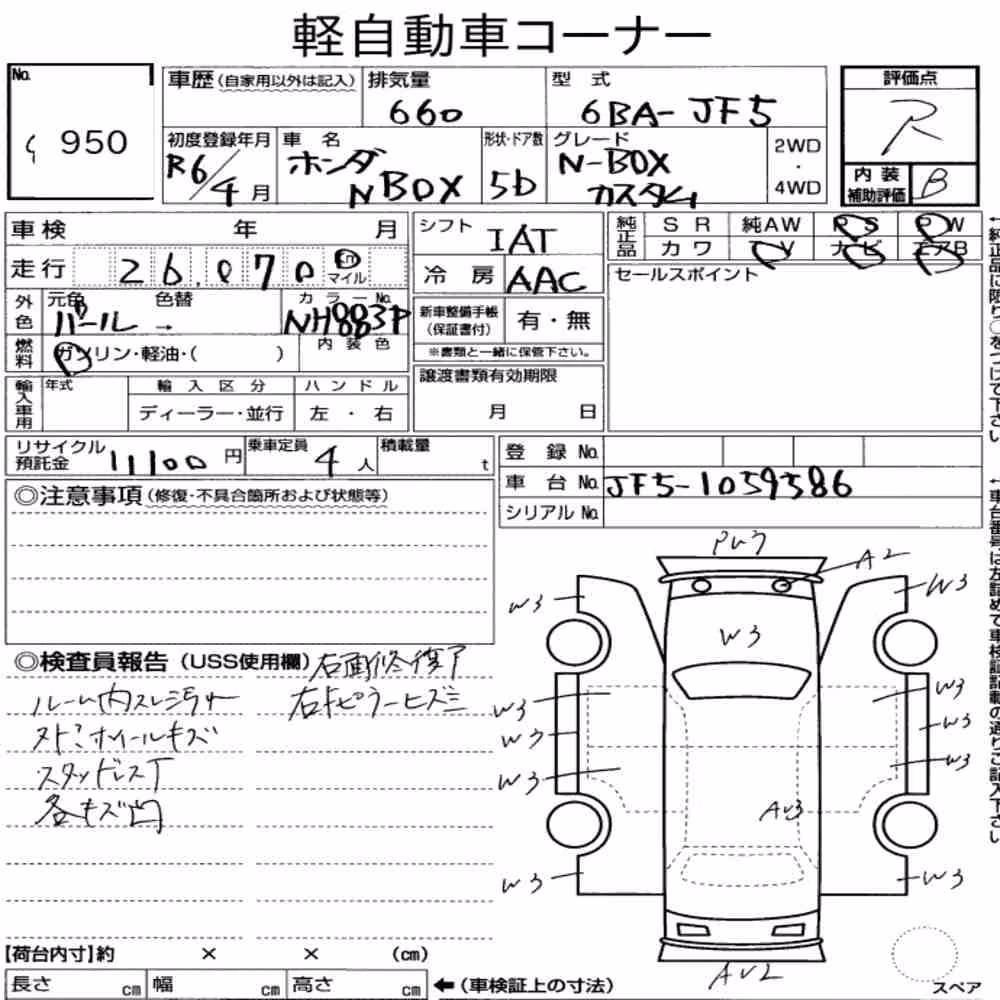 軽自動車コーナー
No.
950
車歴(自家用以外は記入)
排気量
660
型 式
6BA-JF5
評価点
R
初度登録年月
R6/4月
車 名
ホンダ
N BOX
形状・ドア数
5D
グレード
N-BOX
カスタム
2WD
・
4WD
内 装
補助評価
B
車検 年 月
走行 26,070 Km マイル
シフト
IAT
冷 房
AAC
純正品
SR 純AW PS PW
カワ TV ナビ エアB
セールスポイント
外色
元色 色替
パール →
カラーNo.
NH883P
燃料
ガソリン・軽油・( )
内装色
新車整備手帳
(保証書付)
有・無
※書類と一緒に保管下さい。
輸入車用
年式
輸入区分
ディーラー・並行
ハンドル
左 ・ 右
譲渡書類有効期限
月 日
リサイクル
預託金
11100円
乗車定員
4人
積載量
t
登 録 No.
車 台 No.
JF5-1059586
シリアル No.
◎注意事項(修復・不具合箇所および状態等)
◎検査員報告(USS使用欄)
右面修復了
ルーム内スレ汚レ
右トビラーヒズミ
ヌド:ホイールキズ
スタッドレスT
各キズ凹
PU7
A2
W3
W3
W3
W3
W3
W3
W3
W3
W3
AU3
W3
W3
AU2
スペア
【荷台内寸】約 × × (cm)
長さ cm 幅 cm 高さ cm
←(車検証上の寸法)
←純正品に限り○をつけて下さい
←車台番号は左詰めで車検証記載の通りご記入下さい。